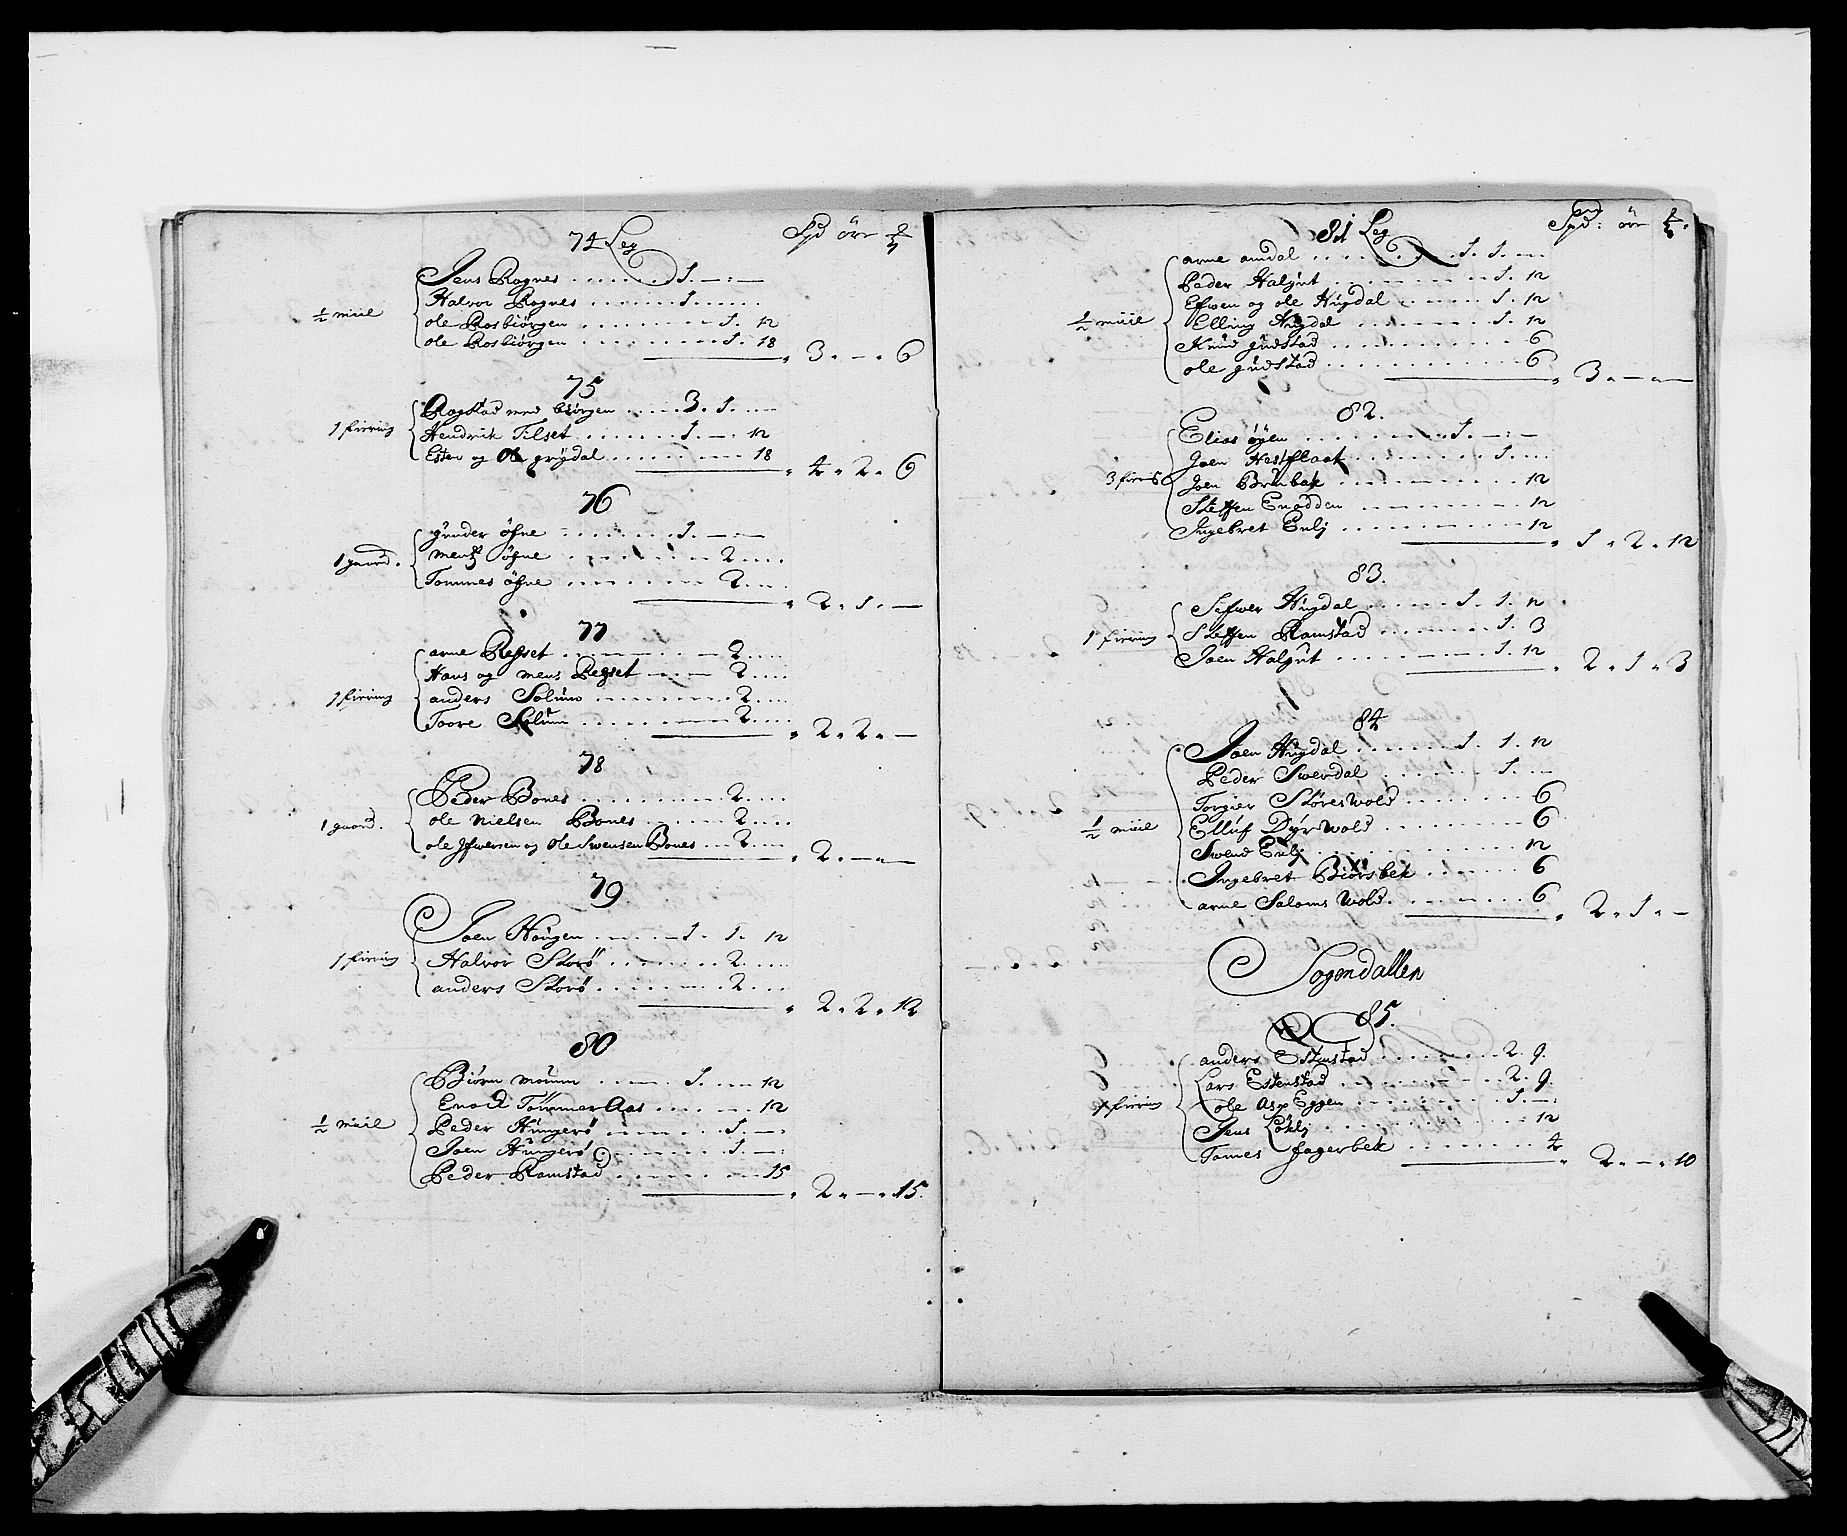 74 Leg Spd örr
Jens Rognes . . . . . 1. — . —
Halvor Rognes . . . . . 1. . . .
½ miil
ole Rosbiörgen . . . . . 1. 12
ole Rosbiörgen . . . . . 1. 18
3. — . 6
75
Rogstad med biörgen . . . . 3. 1. . .
1 fiering
Hendrik Tilset . . . . . 1. — . 12
Esten og Ole grÿdal . . . . . 18
4. 2. 6
76
gunder öÿne . . . . . 1. — . —
1 gaard.
öÿne . . . . . 2. . . .
Tommes öÿne . . . . . 2. . . .
2. 1. —
77
arne Regset . . . . . 2. . . .
Hans og mens Regset . . . 2. . . .
1 fiering
anders Solum . . . . . 2. . . .
Toore Solum . . . . . 2. . . .
2. 2. —
78
Peder Bones . . . . . 2. . . .
1 gaard.
ole Nielsen Bones . . . . 2. . . .
ole Jfwersen og Ole Swensen Bones . . 2. . .
2. — . —
79
Joen Hougen . . . . . 1. 1. 12
1 fiering
Halvor Storö . . . . . 2. . . .
anders Storö . . . . . 2. . . .
2. 2. 12
80
Biörn moum . . . . 1. . . 12
Enoch Tömmer Aas . . . . 12
½ miil
Peder Hungerö . . . . . 1. — .
Joen Hungerö . . . . . 1. — .
Peder Ramstad . . . . . 15
2. — . 15.
81 Leg Spd: örr
arne amdal . . . . . 1. 1. —
Peder Halgut . . . . . 1. 12
Efwen og ole Hugdal . . . . 1. 12
½ miil
Elling Hugdal . . . . . 1. 12
Knud gudstad . . . . . 6
ole gudstad . . . . . 6
3. — . —
82.
Elias öÿen . . . . . 1. — . —
Joen Hestflaat . . . . . 1. . . .
Joen Brubak . . . . . 12
Steffen Enodden . . . . . 12
Ingebret Enlj . . . . . 12
1. 2. 12
83.
Sifwer Hugdal . . . . . 1. 1. 12
1 fiering
Steffen Ramstad . . . . . 1. 3
Joen Halgut . . . . . 1. 12
2. 1. 3
84
Joen Hugdal . . . . . 1. 1. 12
Peder Swerdal . . . . . 1. —
Torgier Störeswold . . . . 6
½ miil
Elluf Dÿrwold . . . . . 6
Swend Enlj . . . . . 12
Ingebret Biörsbek . . . . 6
arne Saloms Wold . . . . 6
2. 1. —
Sogendallen
85.
anders Estenstad . . . . . 2. 9.
Lars Estenstad . . . . . 2. 9.
1 fiering
ole Asp Eggen . . . . . 1. — .
Jens . . . . . 12
Tomes fagerbek . . . . . 4
2. — . 10